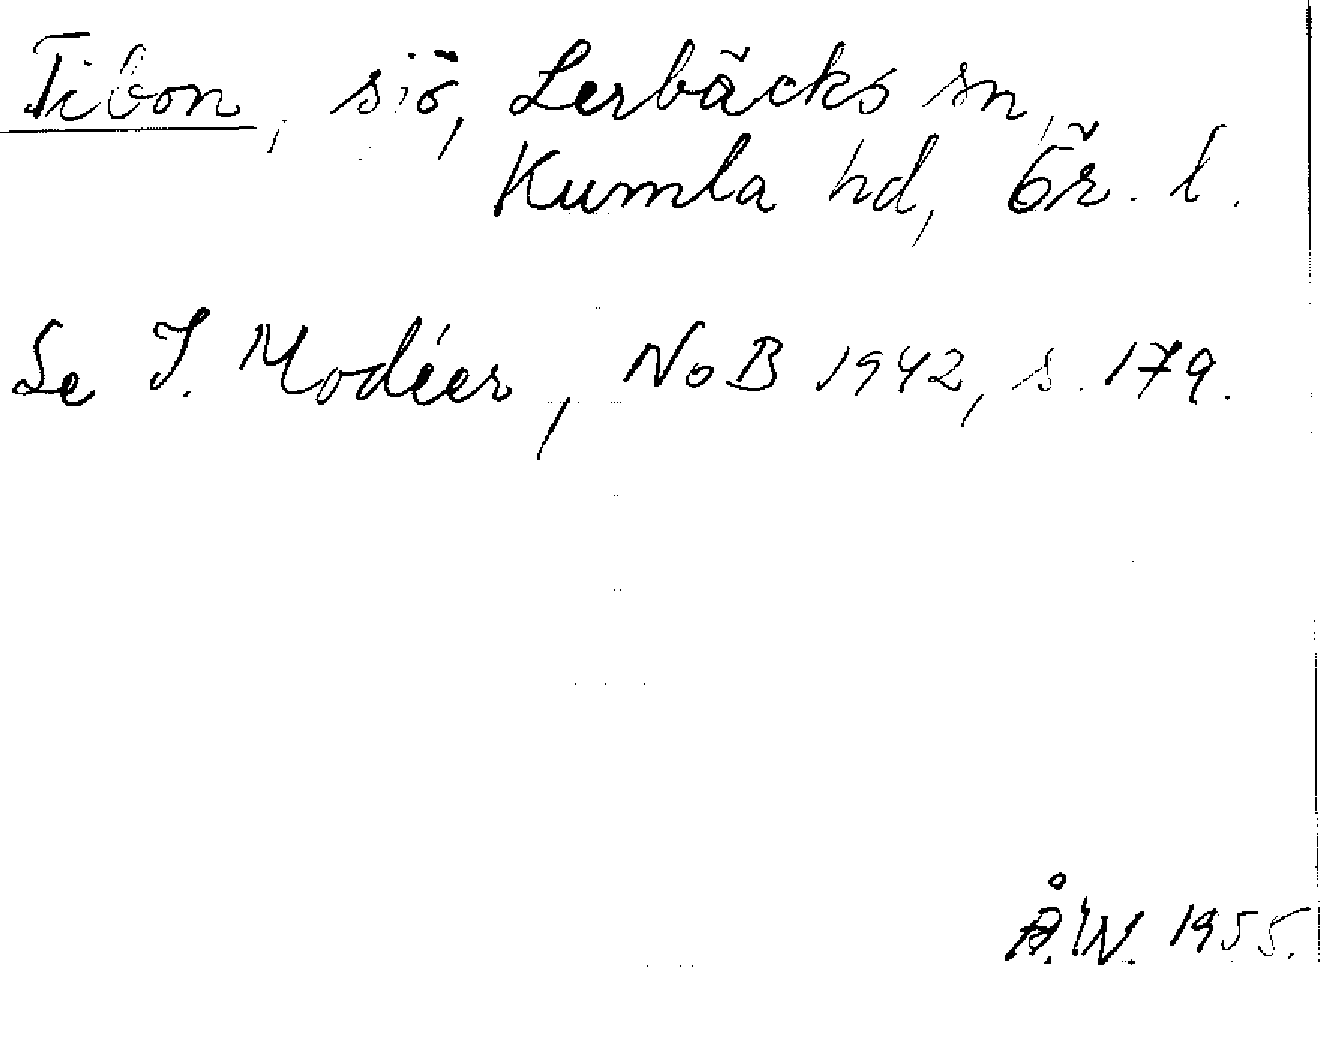 Tibon, sjö, Lerbäcks sn,
Kumla hd, Ör. l.
Se I. Modéer, NoB 1942, s. 179.
Å.W. 1955.